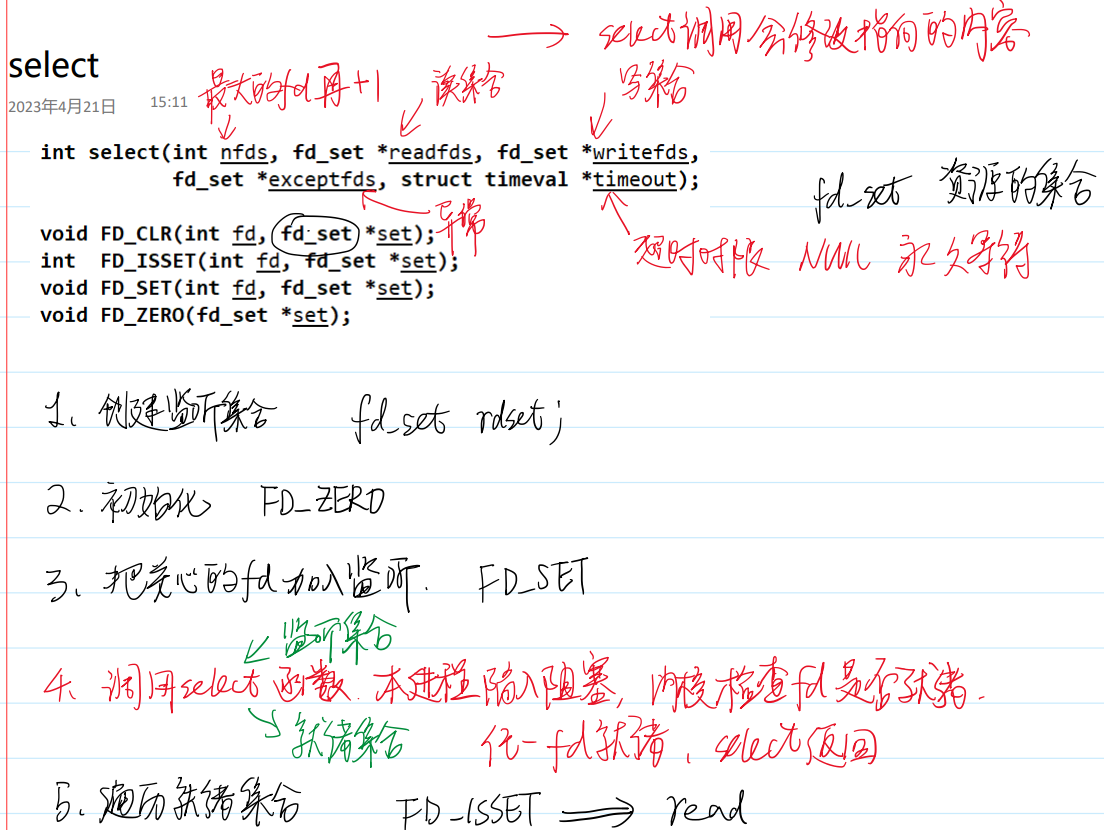 select调用会修改指向的内容
select
2023年4月21日 15:11
最大的fd再+1 读集合 写集合
int select(int nfds, fd_set *readfds, fd_set *writefds,
fd_set *exceptfds, struct timeval *timeout);
fd_set 资源的集合
异常
超时时限 NULL 永久等待
void FD_CLR(int fd, fd_set *set);
int FD_ISSET(int fd, fd_set *set);
void FD_SET(int fd, fd_set *set);
void FD_ZERO(fd_set *set);
1、创建监听集合 fd_set rdset;
2、初始化 FD_ZERO
3、把关心的fd加入监听. FD_SET
监听集合
4、调用select函数. 本进程陷入阻塞, 内核检查fd是否就绪.
就绪集合 任一fd就绪, select返回
5、遍历就绪集合 FD_ISSET read